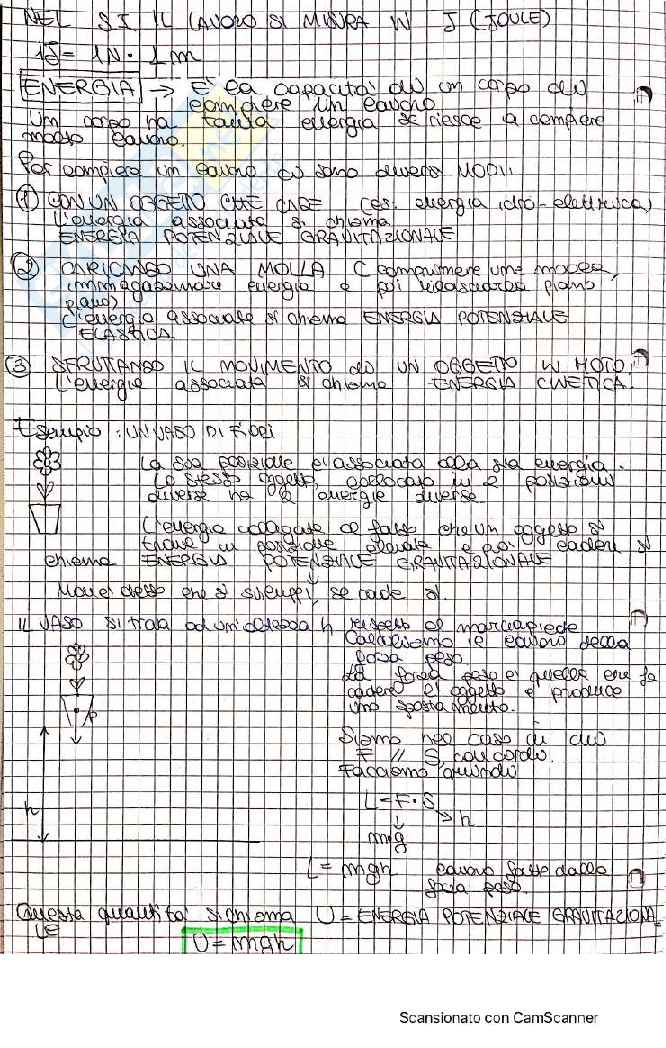 NEL S.I IL LAVORO SI MISURA IN J (JOULE)
1J = 1N · 1m
ENERGIA → È la capacità di un corpo di
compiere un lavoro
Un corpo ha tanta energia se riesce a compiere
molto lavoro.
Per compiere un lavoro ci sono diversi MODI:
① CON UN OGGETTO CHE CADE (es. energia idro-elettrica)
L'energia associata si chiama
ENERGIA POTENZIALE GRAVITAZIONALE
② CARICANDO UNA MOLLA (comprimere una molla,
immagazzinare energia e poi rilasciarla piano
piano)
L'energia associata si chiama ENERGIA POTENZIALE
ELASTICA
③ SFRUTTANDO IL MOVIMENTO di UN OGGETTO IN MOTO:
L'energia associata si chiama ENERGIA CINETICA.
Esempio: UN VASO DI FIORI
La sua posizione è associata alla sua energia.
Lo stesso oggetto, collocato in 2 posizioni
diverse ha 2 energie diverse
L'energia collegata al fatto che un oggetto si
trova in posizione elevata e poi cadere si
chiama ENERGIA POTENZIALE GRAVITAZIONALE
che si se cade
IL VASO SI trova ad un'altezza h rispetto al marciapiede
Calcoliamo il lavoro della
forza peso
La forza peso è quella che fa
cadere l'oggetto e produce
uno spostamento.
P
Siamo nel caso in cui
F // S, concordi.
Facciamo quindi
h
L = F · S
→ h
m·g
L = mgh lavoro fatto dalla
forza peso.
Questa quantità si chiama U = ENERGIA POTENZIALE GRAVITAZIONA-
LE
U = mgh
Scansionato con CamScanner